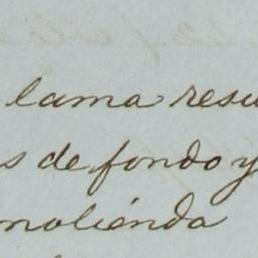 lama resu
s de fondo y
molienda